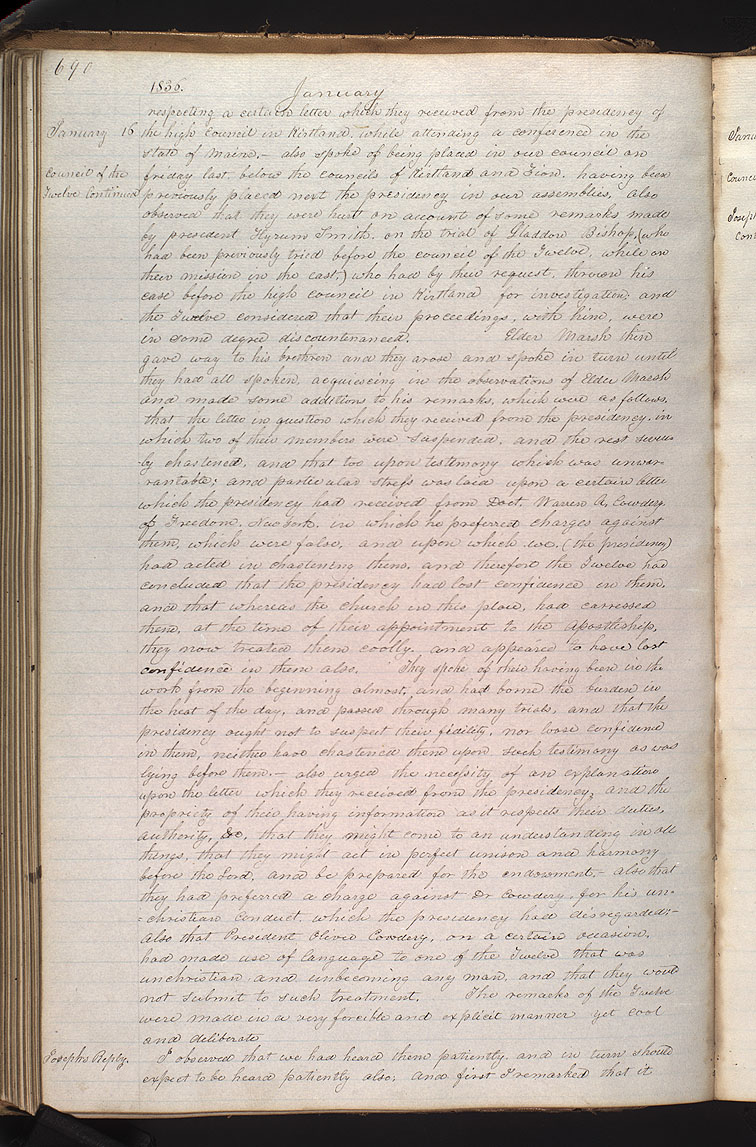 690
1836. January
respecting a certain letter which they received from the presidency of
January 16 the high council in Kirtland, while attending a conference in the
State of Maine,— also spoke of being placed in our council on
Council of the friday last, below the councils of Kirtland and Zion, having been
Twelve Continued previously placed next the presidency in our assemblies. also
observed that they were hurt on account of some remarks made
by president Hyrum Smith. on the trial of Gladdon Bishop, (who
had been previously tried before the council of the Twelve, while on
their mission in the east,) who had by their request, thrown his
case before the high council in Kirtland for investigation; and
the Twelve considered that their proceedings, with him, were
in some degree discountenanced. Elder Marsh then
gave way to his brethren and they arose and spoke in turn until
they had all spoken, acquiescing in the observations of Elder Marsh
and made some additions to his remarks, which were as follows.
that the letter in question which they received from the presidency, in
which two of their members were suspended, and the rest severe-
ly chastened, and that too upon testimony which was unwar-
rantable; and particular stress was laid upon a certain letter
which the presidency had received from Doct. Warren A. Cowdery
of Freedom, New York, in which he preferred charges against
them, which were false, and upon which we. (the presidency)
had acted in chastening them, and therefore the Twelve had
concluded that the presidency had lost confidence in them,
and that whereas the church in this place, had carressed
them, at the time of their appointment to the apostleship,
they now treated them coolly, and appeared to have lost
confidence in them also. They spoke of their having been in the
work from the beginning almost, and had borne the burden in
the heat of the day, and passed through many trials, and that the
presidency ought not to suspect their fidility, nor loose confidence
in them, neither have chastened them upon such testimony as was
lying before them.— also urged the necessity of an explanation
upon the letter which they received from the presidency, and the
propriety of their having information as it respects their duties,
authority, &c, that they might come to an understanding in all
things, that they might act in perfect unison and harmony
before the Lord, and be prepared for the endowment,— also that
they had preferred a charge against Dr Cowdery, for his un-
-christian conduct, which the presidency had disregarded;—
also that President Oliver Cowdery, on a certain occasion,
had made use of language to one of the Twelve that was
unchristian and unbecoming any man, and that they would
not submit to such treatment. The remarks of the Twelve
were made in a very forcible and explicit manner yet cool
and deliberate
Josephs Reply. I observed that we had heard them patiently, and in turn should
expect to be heard patiently also; and first I remarked that it